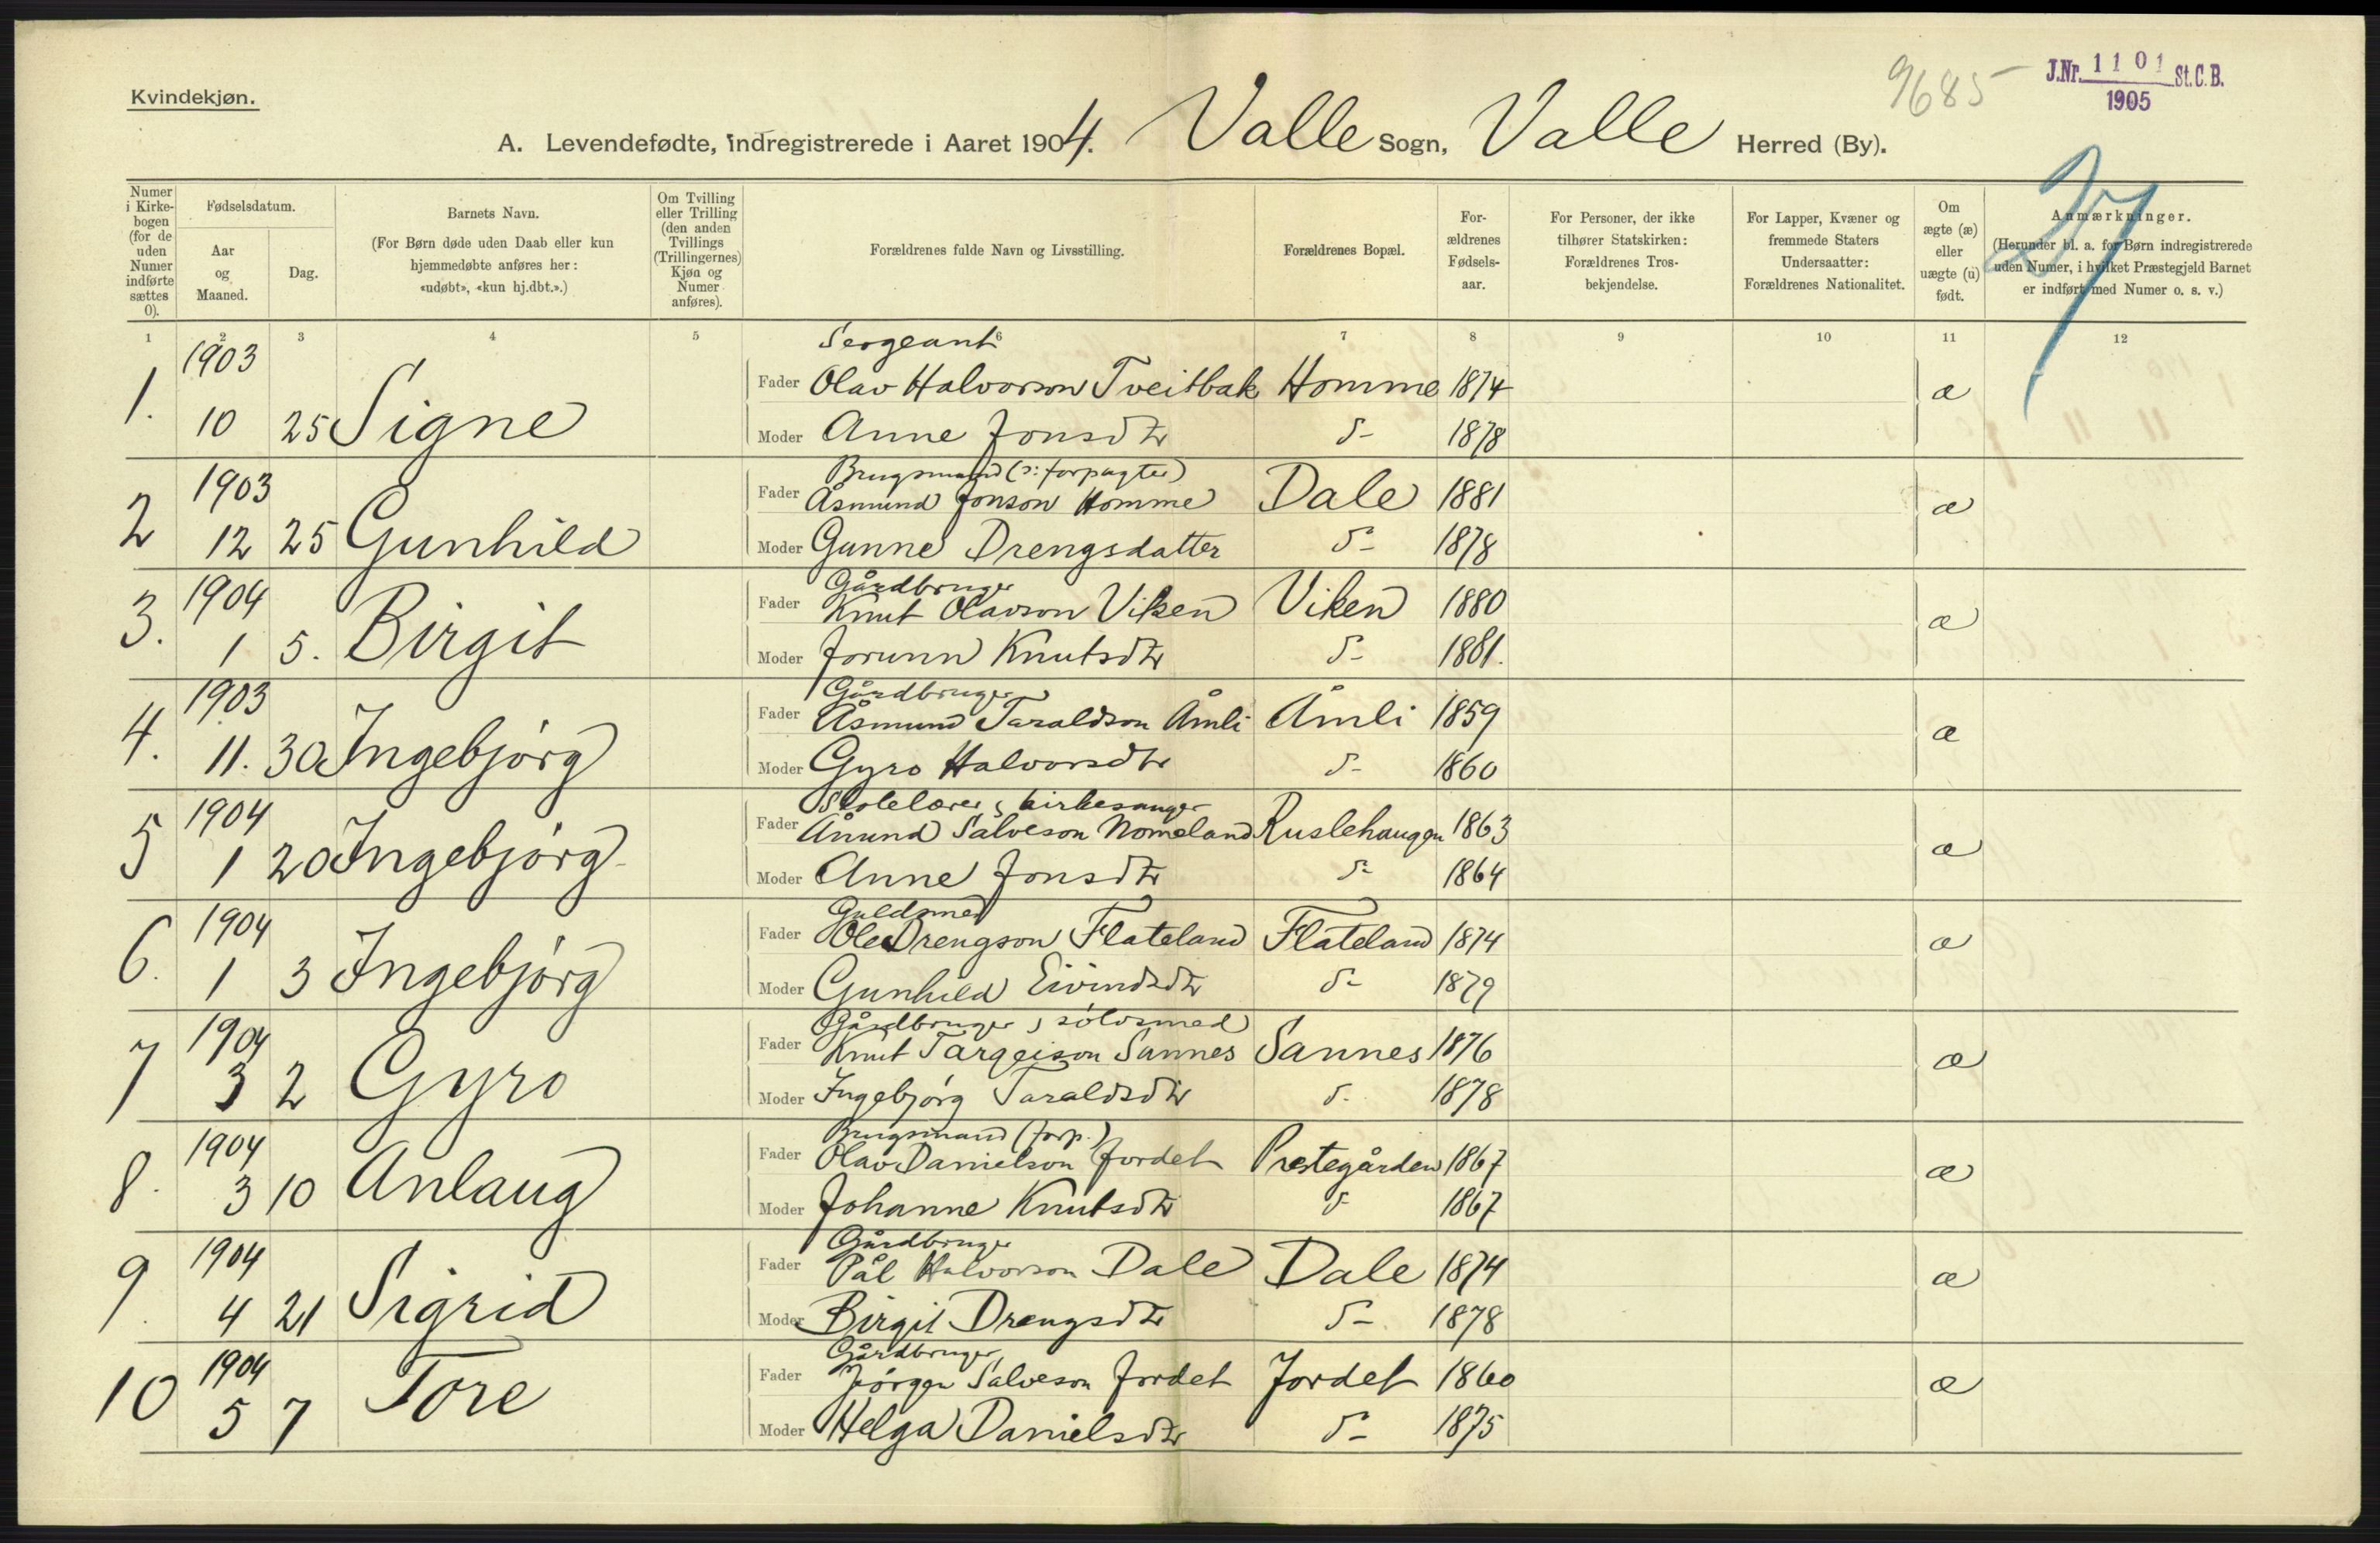 Kvindekjøn.
9685
J.Nr. 1101 St.C.B.
1905
A. Levendefødte, indregistrerede i Aaret 1904. Valle Sogn, Valle Herred (By).
27
Numer i Kirkebogen (for de uden Numer indførte sættes 0).
Fødselsdatum.
Aar og Maaned.
Dag.
Barnets Navn.
(For Børn døde uden Daab eller kun hjemmedøbte anføres her: «udøbt», «kun hj.dbt.».)
Om Tvilling eller Trilling (den anden Tvillings (Trillingernes) Kjøn og Numer anføres).
Forældrenes fulde Navn og Livsstilling.
Forældrenes Bopæl.
Forældrenes Fødselsaar.
For Personer, der ikke tilhører Statskirken: Forældrenes Trosbekjendelse.
For Lapper, Kvæner og fremmede Staters Undersaatter: Forældrenes Nationalitet.
Om ægte (æ) eller uægte (u) født.
Anmærkninger.
(Herunder bl. a. for Børn indregistrerede uden Numer, i hvilket Præstegjeld Barnet er indført med Numer o. s. v.)
1 2 3 4 5 6 7 8 9 10 11 12
1903 Sergeant
1. 10 25 Signe Fader Olav Halvorson Tveitbak Homme 1874 æ
Moder Anne Jonsdtr d- 1878
1903 Brugsmand (ɔ: forpagter)
2 12 25 Gunhild Fader Åsmund Jonson Homme Dale 1881 æ
Moder Gunne Drengsdatter d- 1878
1904 Gårdbruger
3. 1 5. Birgit Fader Knut Olavson Viken Viken 1880 æ
Moder Jorunn Knutsdtr d- 1881.
1903 Gårdbruger
4. 11. 30 Ingebjørg Fader Åsmund Taraldson Åmli Åmli 1859 æ
Moder Gyro Halvorsdtr d- 1860
1904 Skolelærer, kirkesanger
5 1 20 Ingebjørg Fader Ånund Salveson Nomeland Ruslehaugen 1863 æ
Moder Anne Jonsdtr d- 1864
1904 Guldsmed
6. 1 3 Ingebjørg Fader Ole Drengson Flateland Flateland 1874 æ
Moder Gunhild Eivindsdtr d- 1879
1904 Gårdbruger, sølvsmed
7 3 2 Gyro Fader Knut Targeison Sannes Sannes 1876 æ
Moder Ingebjørg Taraldsdtr d- 1878
1904 Brugsmand (forp.)
8. 3 10 Anlaug Fader Olav Danielson Jordet Prestegården 1867 æ
Moder Johanne Knutsdtr d- 1867
1904 Gårdbruger
9. 4 21 Sigrid Fader Pål Halvorson Dale Dale 1874 æ
Moder Birgit Drengsdtr d- 1878
1904 Gårdbruger
10 5 7 Tore Fader Jørgen Salveson Jordet Jordet 1860 æ
Moder Helga Danielsdtr d- 1875